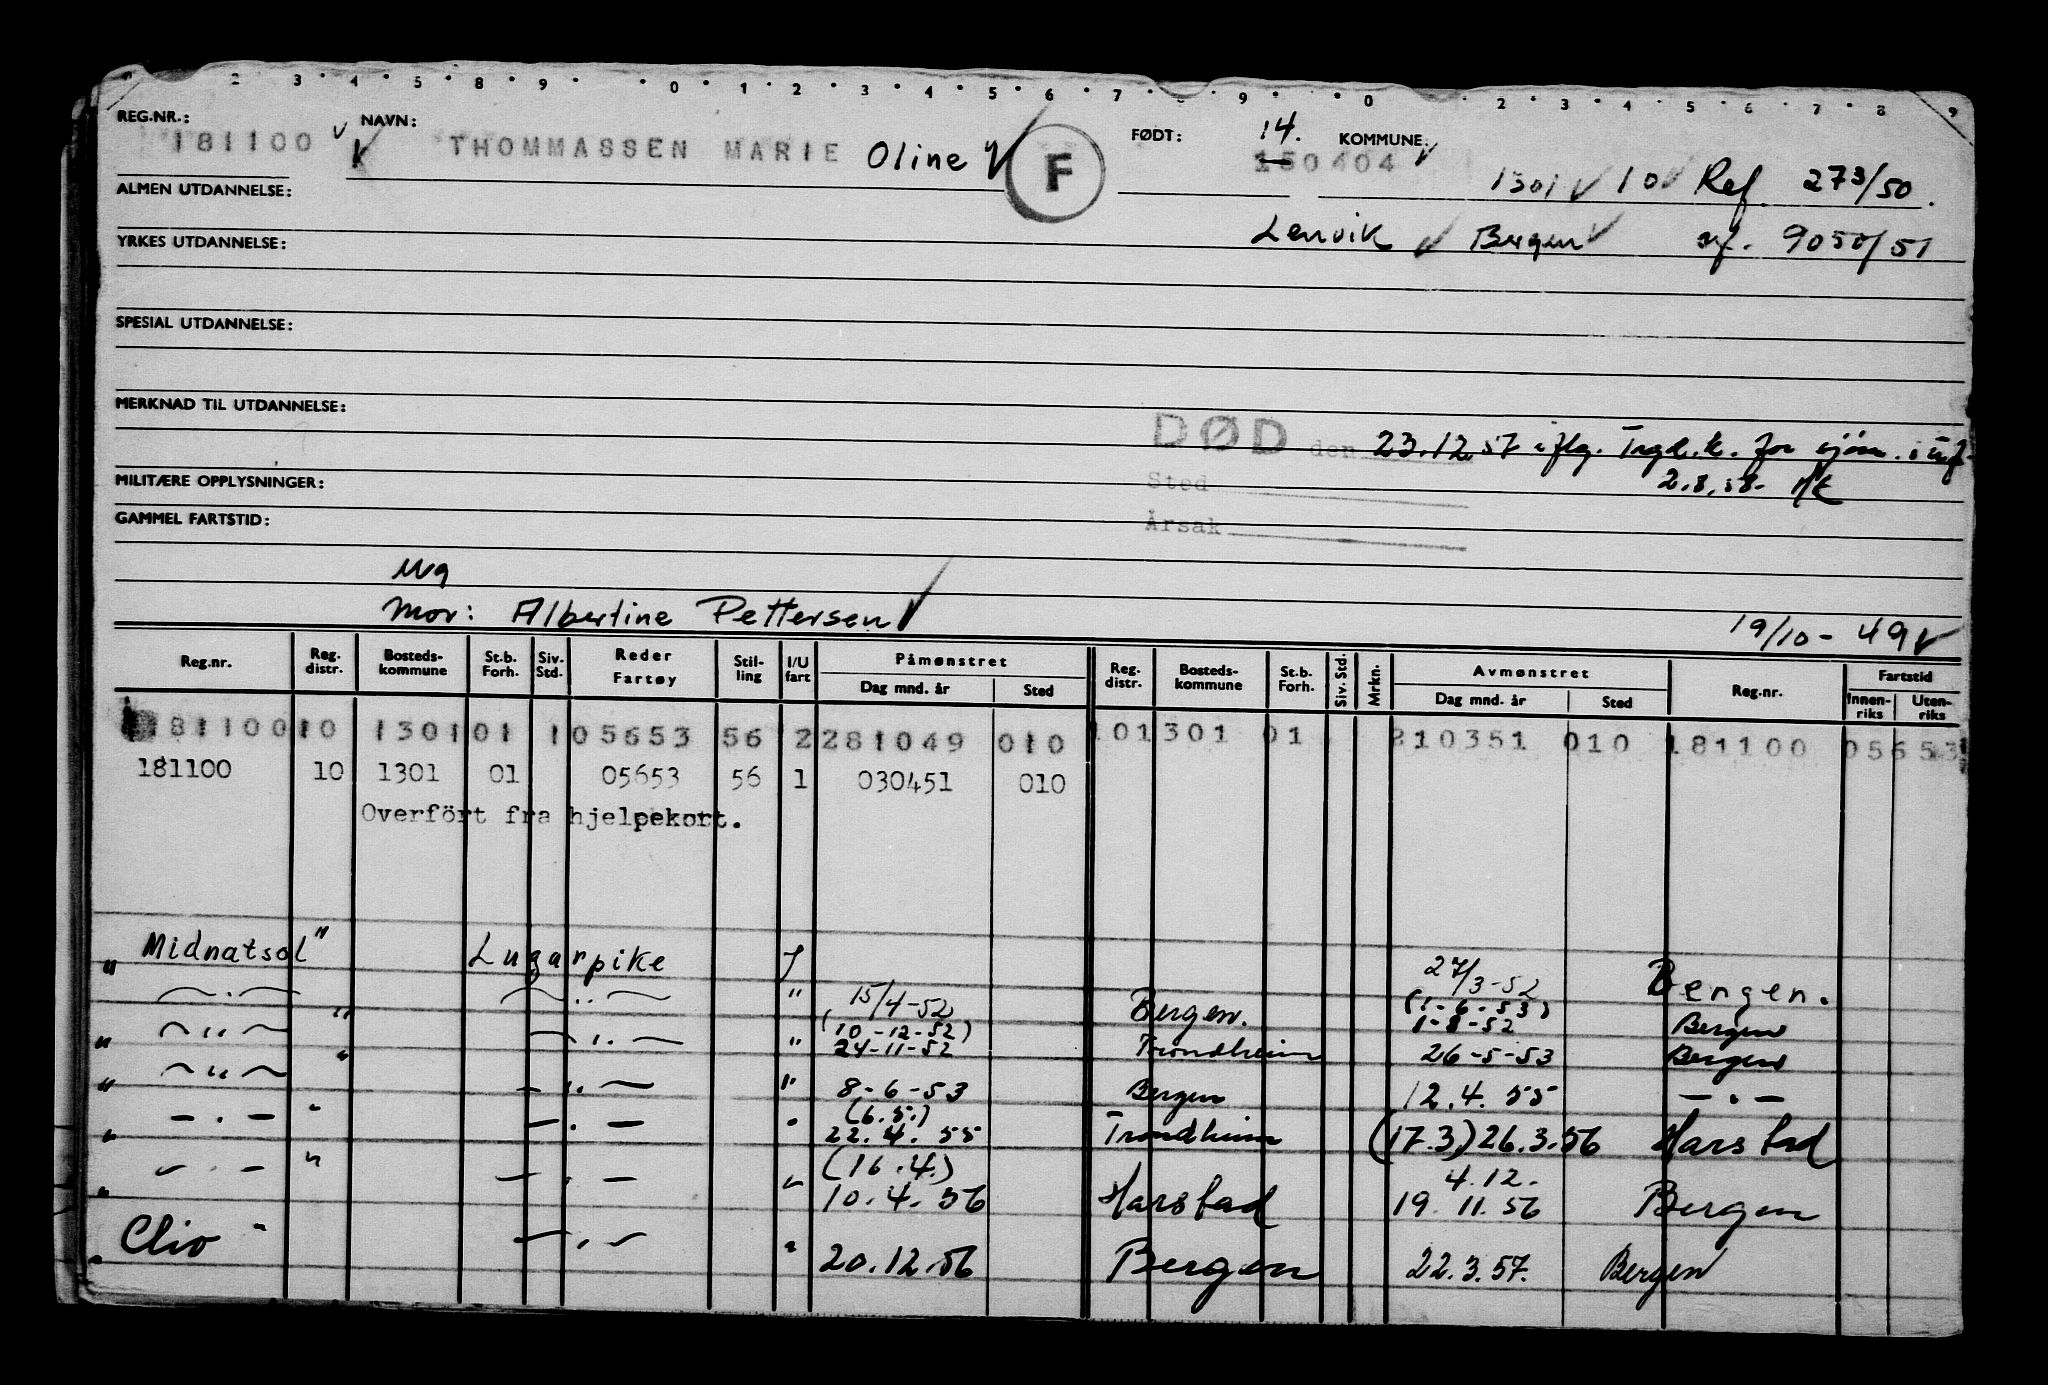 2 3 4 5 8 9 0 1 2 3 4 5 6 7 9 0 2 3 4 5 6 7 8 9
REG.NR.: NAVN: FØDT: 14. KOMMUNE:
181100 THOMMASSEN MARIE Oline F 150404 1301 10 Ref. 273/50.
ALMEN UTDANNELSE:
Lenvik Bergen 9050/51
YRKES UTDANNELSE:
SPESIAL UTDANNELSE:
MERKNAD TIL UTDANNELSE:
DØD den 23.12.57 iflg. Trgd.k. for sjøm.
MILITÆRE OPPLYSNINGER: Sted 2.8.58.
GAMMEL FARTSTID: Årsak
Ug
Mor: Albertine Pettersen 19/10-49
Reg.nr. Reg. distr. Bosteds-kommune St.b. Forh. Siv. Std. Reder Fartøy Stil-ling I/U fart Påmønstret Dag mnd. år Sted Reg. distr. Bosteds-kommune St.b. Forh. Siv. Std. Mrkn. Avmønstret Dag mnd. år Sted Reg.nr. Fartstid Innen-riks Uten-riks
181100 10 1301 01 1 05653 56 2 281049 010 10 1301 01 210351 010 181100 05653
181100 10 1301 01 05653 56 1 030451 010
Overført fra hjelpekort.
"Midnatsol" Lugarpike 27/3-52 Bergen.
— . — " — .. — " 15/4-52 Bergen. (1-6-53) 1-8-52 Bergen
" — " — " — .. — " (10-12-52) 24-11-52 Trondheim 26-5-53 Bergen
" — " — " — .. — " 8-6-53 Bergen 12.4.55 — . —
" — . — " — . — " (6.5.) 22.4.55 Trondheim (17.3) 26.3.56 Harstad
" — . — " — . — " (16.4.) 10.4.56 Harstad 4.12. 19.11.56 Bergen
"Clio" — . — " 20.12.56 Bergen 22.3.57. Bergen